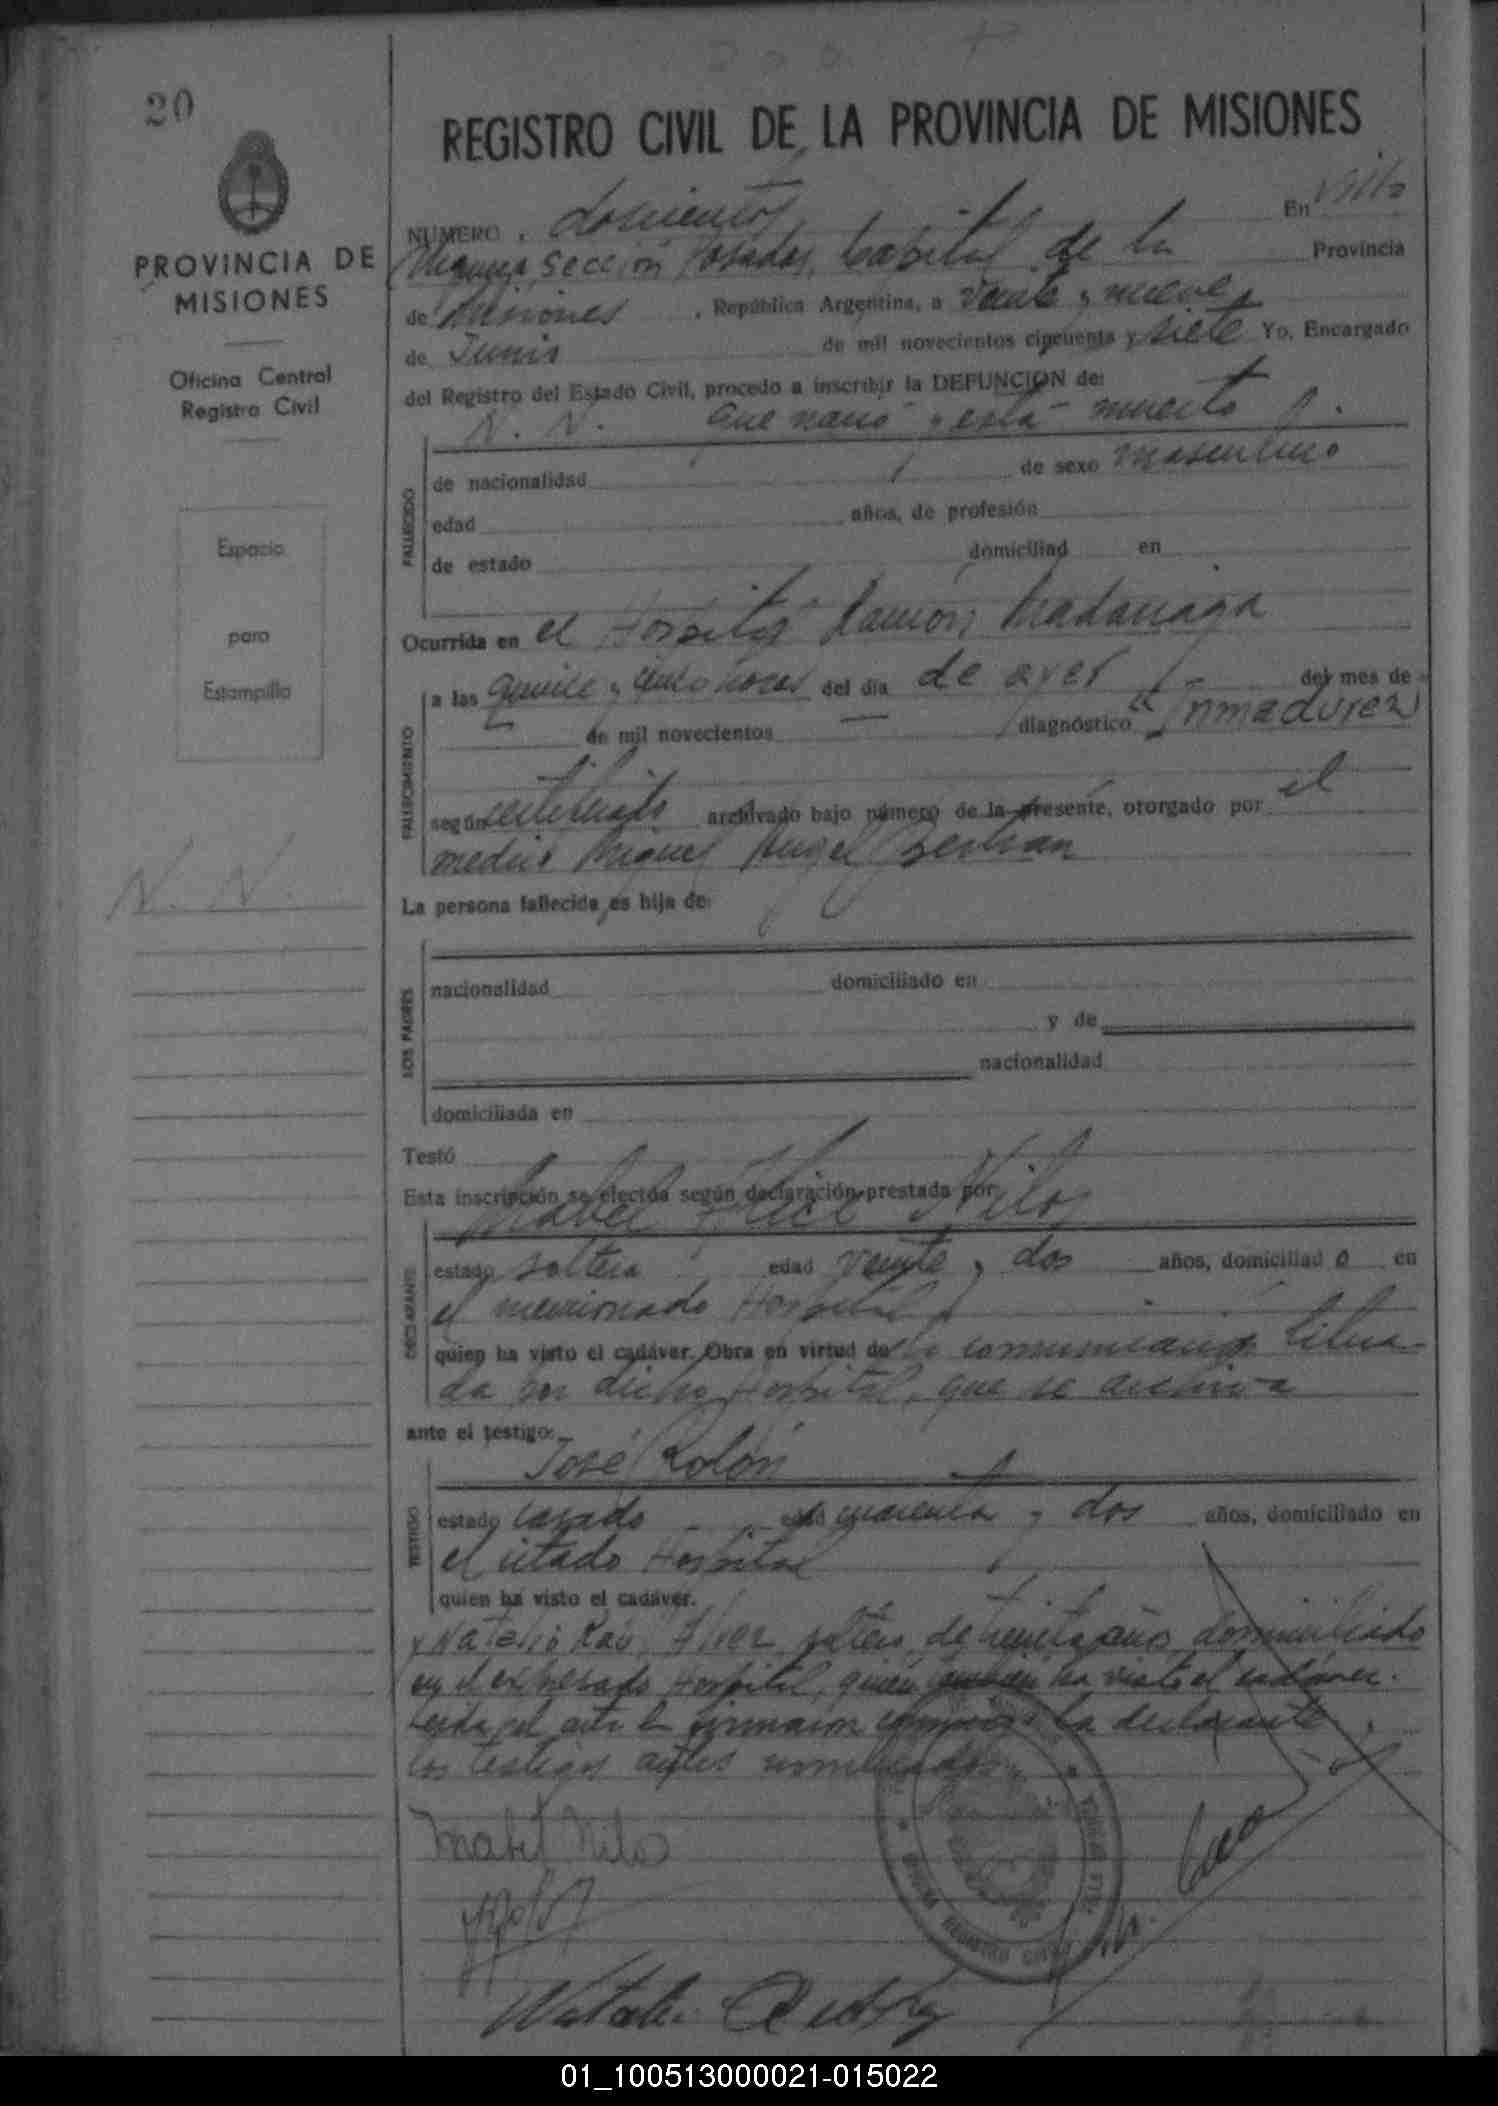 20
REGISTRO CIVIL DE LA PROVINCIA DE MISIONES
PROVINCIA DE
MISIONES
Oficina Central
Registro Civil
Espacio
para
Estampilla
N. N.
NUMERO doscientos En Villa
sección Posadas, Capital de la Provincia
de Misiones, República Argentina, a veinte y nueve
de Junio de mil novecientos cincuenta y siete Yo, Encargado
del Registro del Estado Civil, procedo a inscribir la DEFUNCION de:
N. N. que nació y está muerto
FALLECIDO
de nacionalidad de sexo masculino
edad años, de profesión
de estado domiciliad en
Ocurrida en el Hospital Ramón Madariaga
FALLECIMIENTO
a las quince y cinco horas del día de ayer del mes de
de mil novecientos — diagnóstico "Inmadurez
según certificado archivado bajo número de la presente, otorgado por el
medico Miguel Angel Bertran
La persona fallecida es hija de:
SOS PADRES
nacionalidad domiciliado en
y de
nacionalidad
domiciliada en
Testó
Esta inscripción se efectúa según declaración prestada por
Mabel Alice Nilo
DECLARANTE
estado soltera edad veinte y dos años, domiciliad a en
el mencionado Hospital
quien ha visto el cadáver. Obra en virtud de la comunicación
da por dicho Hospital, que se archiva
ante el testigo:
José Rolón
TESTIGO
estado casado edad cuarenta y dos años, domiciliado en
el citado Hospital
quien ha visto el cadáver.
y soltero, de treinta años, domiciliado
en el expresado Hospital, quien también ha visto el cadáver.
Leída el acta la firmaron conmigo la declarante y
los testigos antes nombrados.
Mabel Nilo
01_100513000021-015022